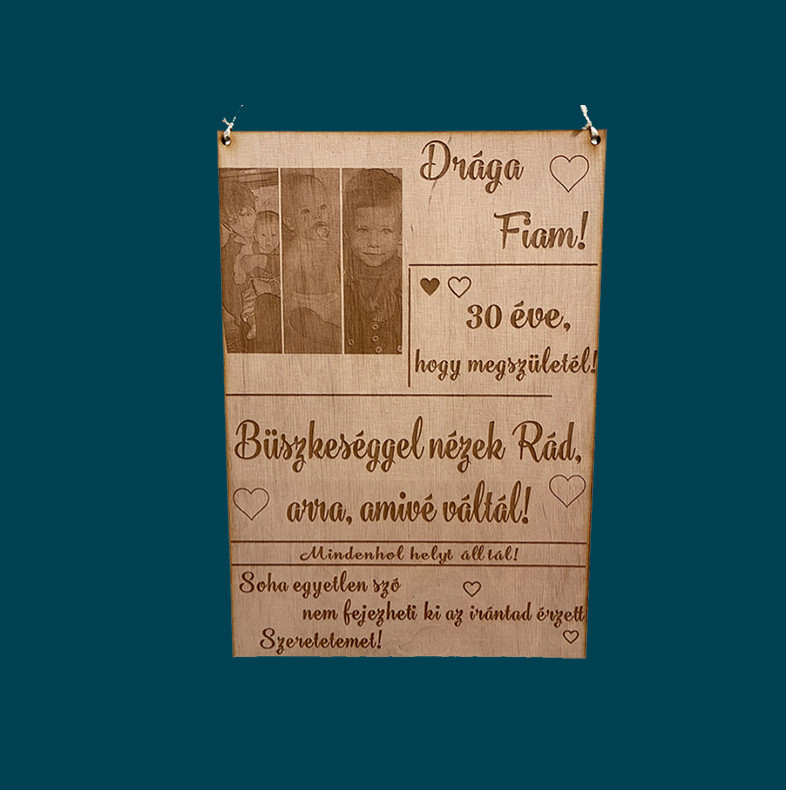 Drága
Fiam!
30 éve,
hogy megszületél!
Büszkeséggel nézek Rád,
arra, amivé váltál!
Mindenhol helyt álltál!
Soha egyetlen szó
nem fejezheti ki az irántad érzett
Szeretetemet!